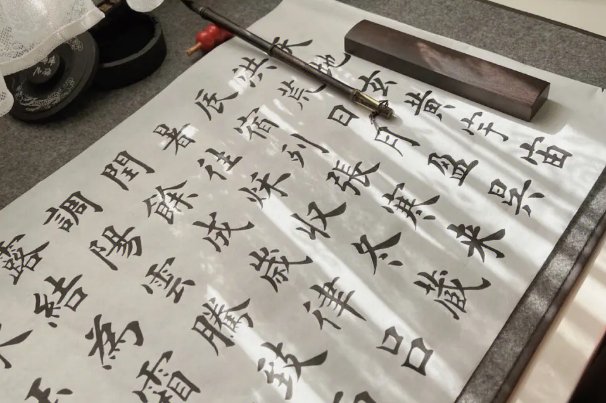 天地玄黃宇宙
洪荒日月盈昃
辰宿列張寒来
暑往秋收冬藏
閏餘成歲律呂
調陽雲騰致
露結為霜